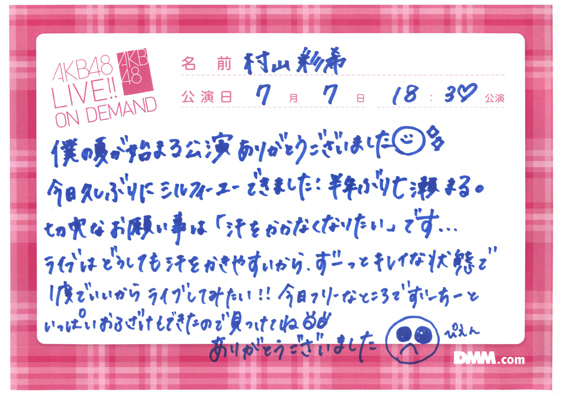 AKB48
LIVE!!
ON DEMAND
AKB
48
名前 村山彩希
公演日 7月7日 18:30公演
僕の夏が始まる公演ありがとうございました
今日久しぶりにシルフィーユーできました!半年ぶり七瀬まる。
切実なお願い事は「汗をかかなくなりたい」です...
ライブはどうしても汗をかきやすいから、ずーっとキレイな状態で
1度でいいからライブしてみたい!!今日フリーなところでずーちーと
いっぱいおふざけもできたので見つけてね
ありがとうございました
ぴえん
DMM.com